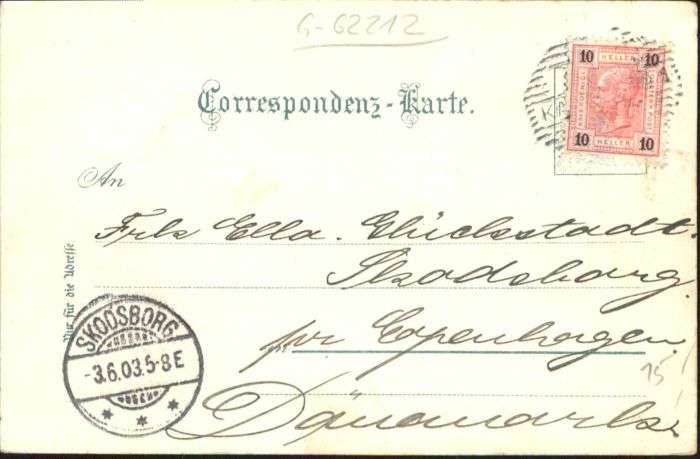 G-62212
10 HELLER 10
KAISERKÖNIGL.
10 HELLER 10
Correspondenz-Karte.
An
Nur für die Adresse
Frln Ella. Glückstadt.
Skodsborg.
SKODSBORG
-3.6.03.5-8 E
pr Copenhagen.
15
Dänemark.